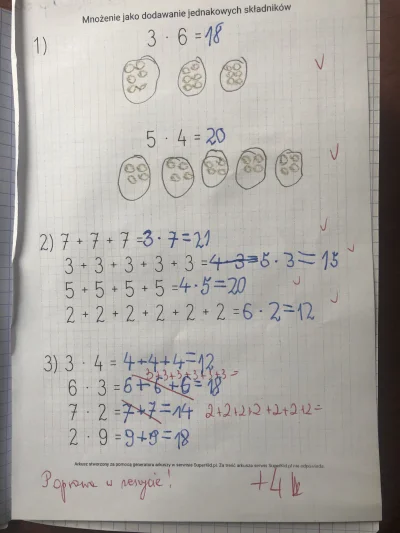 Mnożenie jako dodawanie jednakowych składników
1) 3 · 6 = 18
5 · 4 = 20
2) 7 + 7 + 7 = 3 · 7 = 21
3 + 3 + 3 + 3 + 3 = 4 · 3 = 5 · 3 = 15
5 + 5 + 5 + 5 = 4 · 5 = 20
2 + 2 + 2 + 2 + 2 + 2 = 6 · 2 = 12
3) 3 · 4 = 4 + 4 + 4 = 12
3+3+3+3+3+3=
6 · 3 = 6 + 6 + 6 = 18
7 · 2 = 7 + 7 = 14 2+2+2+2+2+2+2=
2 · 9 = 9 + 9 = 18
Arkusz stworzony za pomocą generatora arkuszy w serwisie Superkid.pl. Za treść arkusza serwis Superkid.pl nie odpowiada.
Poprawa w zeszycie!
+4